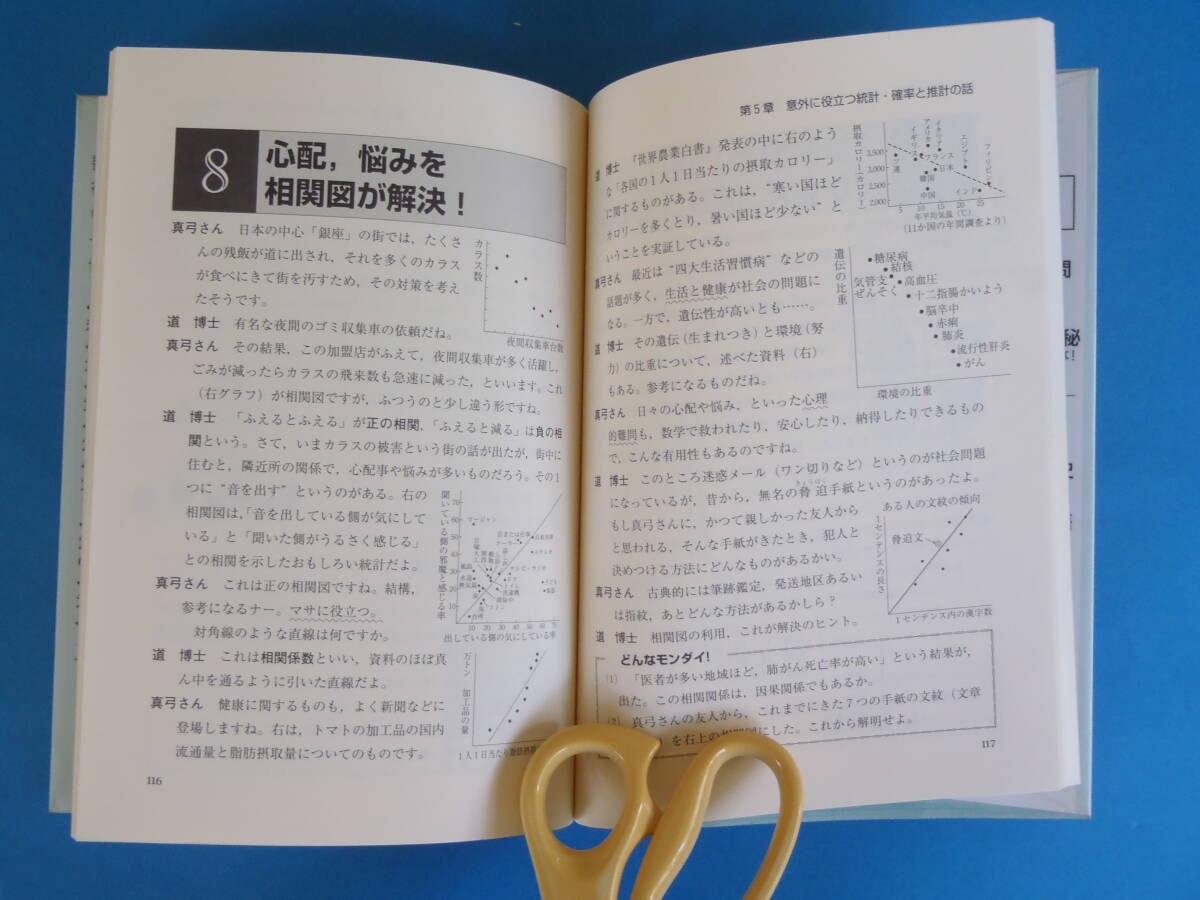 8
心配，悩みを
相関図が解決！
真弓さん　日本の中心「銀座」の街では，たくさ
んの残飯が道に出され，それを多くのカラス
が食べにきて街を汚すため，その対策を考え
たそうです。
道　博士　有名な夜間のゴミ収集車の依頼だね。
真弓さん　その結果，この加盟店がふえて，夜間収集車が多く活躍し，
ごみが減ったらカラスの飛来数も急速に減った，といいます。これ
（右グラフ）が相関図ですが，ふつうのと少し違う形ですね。
カラス数
夜間収集車台数
道　博士　「ふえるとふえる」が正の相関，「ふえると減る」は負の相
関という。さて，いまカラスの被害という街の話が出たが，街中に
住むと，隣近所の関係で，心配事や悩みが多いものだろう。その1
つに“音を出す”というのがある。右の
相関図は，「音を出している側が気にして
いる」と「聞いた側がうるさく感じる」
との相関を示したおもしろい統計だよ。
真弓さん　これは正の相関図ですね。結構，
参考になるナー。マサに役立つ。
対角線のような直線は何ですか。
聞いている側の邪魔と感じる率
70
60
50
40
30
20
10
マージャン
10 20 30 40 50 60 70
出している側の気にしている率
道　博士　これは相関係数といい，資料のほぼ真
ん中を通るように引いた直線だよ。
真弓さん　健康に関するものも，よく新聞などに
登場しますね。右は，トマトの加工品の国内
流通量と脂肪摂取量についてのものです。
万トン　加工品の量
1人1日当たり脂肪摂取
116
第5章　意外に役立つ統計・確率と推計の話
道　博士　『世界農業白書』発表の中に右のよう
な「各国の1人1日当たりの摂取カロリー」
に関するものがある。これは，“寒い国ほど
カロリーを多くとり，暑い国ほど少ない”と
いうことを実証している。
摂取カロリー（カロリー）
3,500
3,000
2,500
2,000
ソ連
イギリス
アメリカ
イタリア
フランス
日本
韓国
中国
エジプト
インド
フィリピン
5 10 15 20 25
年平均気温（℃）
（11か国の年間調査より）
真弓さん　最近は“四大生活習慣病”などの
話題が多く，生活と健康が社会の問題に
なる。一方で，遺伝性が高いとも……。
道　博士　その遺伝（生まれつき）と環境（努
力）の比重について，述べた資料（右）
もある。参考になるものだね。
遺伝の比重
糖尿病
結核
気管支ぜんそく
高血圧
十二指腸かいよう
脳卒中
赤痢
肺炎
流行性肝炎
がん
環境の比重
真弓さん　日々の心配や悩み，といった心理
的難問も，数学で救われたり，安心したり，納得したりできるもの
で，こんな有用性もあるのですね。
道　博士　このところ迷惑メール（ワン切りなど）というのが社会問題
になっているが，昔から，無名の脅迫手紙というのがあったよ。
きょうはく
もし真弓さんに，かつて親しかった友人から
と思われる，そんな手紙がきたとき，犯人と
決めつける方法にどんなものがあるかい。
真弓さん　古典的には筆跡鑑定，発送地区あるい
は指紋，あとどんな方法があるかしら？
道　博士　相関図の利用，これが解決のヒント。
ある人の文紋の傾向
1センテンスの長さ
脅迫文
1センテンス内の漢字数
どんなモンダイ！
(1)　「医者が多い地域ほど，肺がん死亡率が高い」という結果が，
出た。この相関関係は，因果関係でもあるか。
(2)　真弓さんの友人から，これまでにきた7つの手紙の文紋（文章
）を右上の相関図にした。これから解明せよ。
117